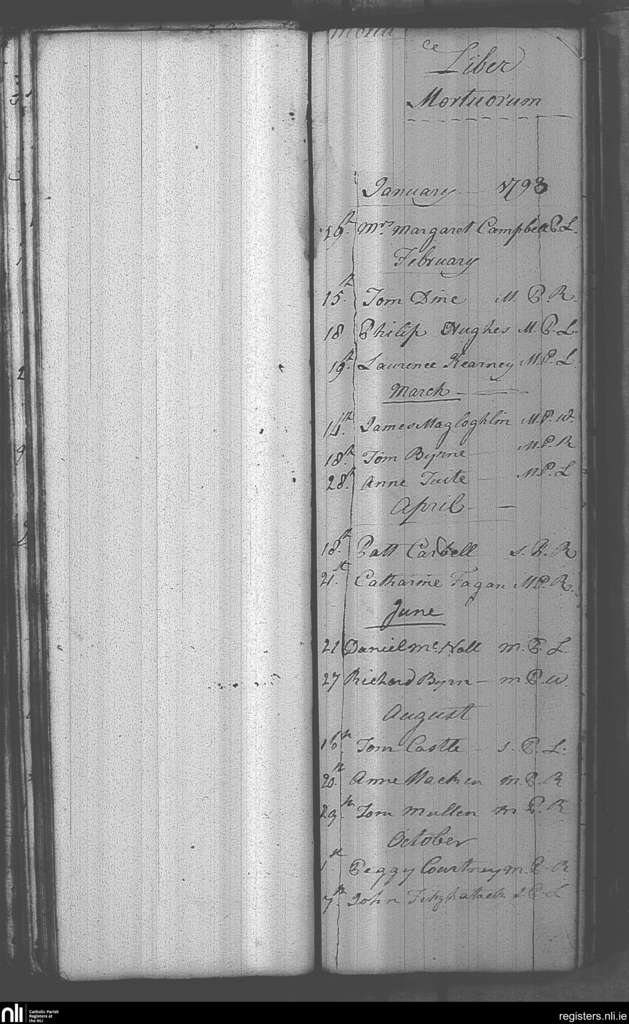 Liber
Mortuorum
January 1793
19th Mrs Margaret Campbell P. L.
February
15th Tom Dine M. P. R.
18 Philip Hughes M. P. L.
19th Laurence Kearney M. P. L
March
14th James Magloghlin M. P. W.
18th Tom Byrne M. P. R
28th Anne Tuite M. P. L
April
18th Patt Carbell S. P. R
21st Catharine Fagan M. P. R.
June
21 Daniel McNall m. P. L
27 Richard Byrn m P. W.
August
16th Tom Castle S. P. L.
20th Anne Macken m. P. R
29th Tom Mullen m P. R
October
1st Peggy Courtney m. P. R
7th John Fitzpattrick S. P. L
nli
Catholic Parish
Registers at
the NLI
registers.nli.ie